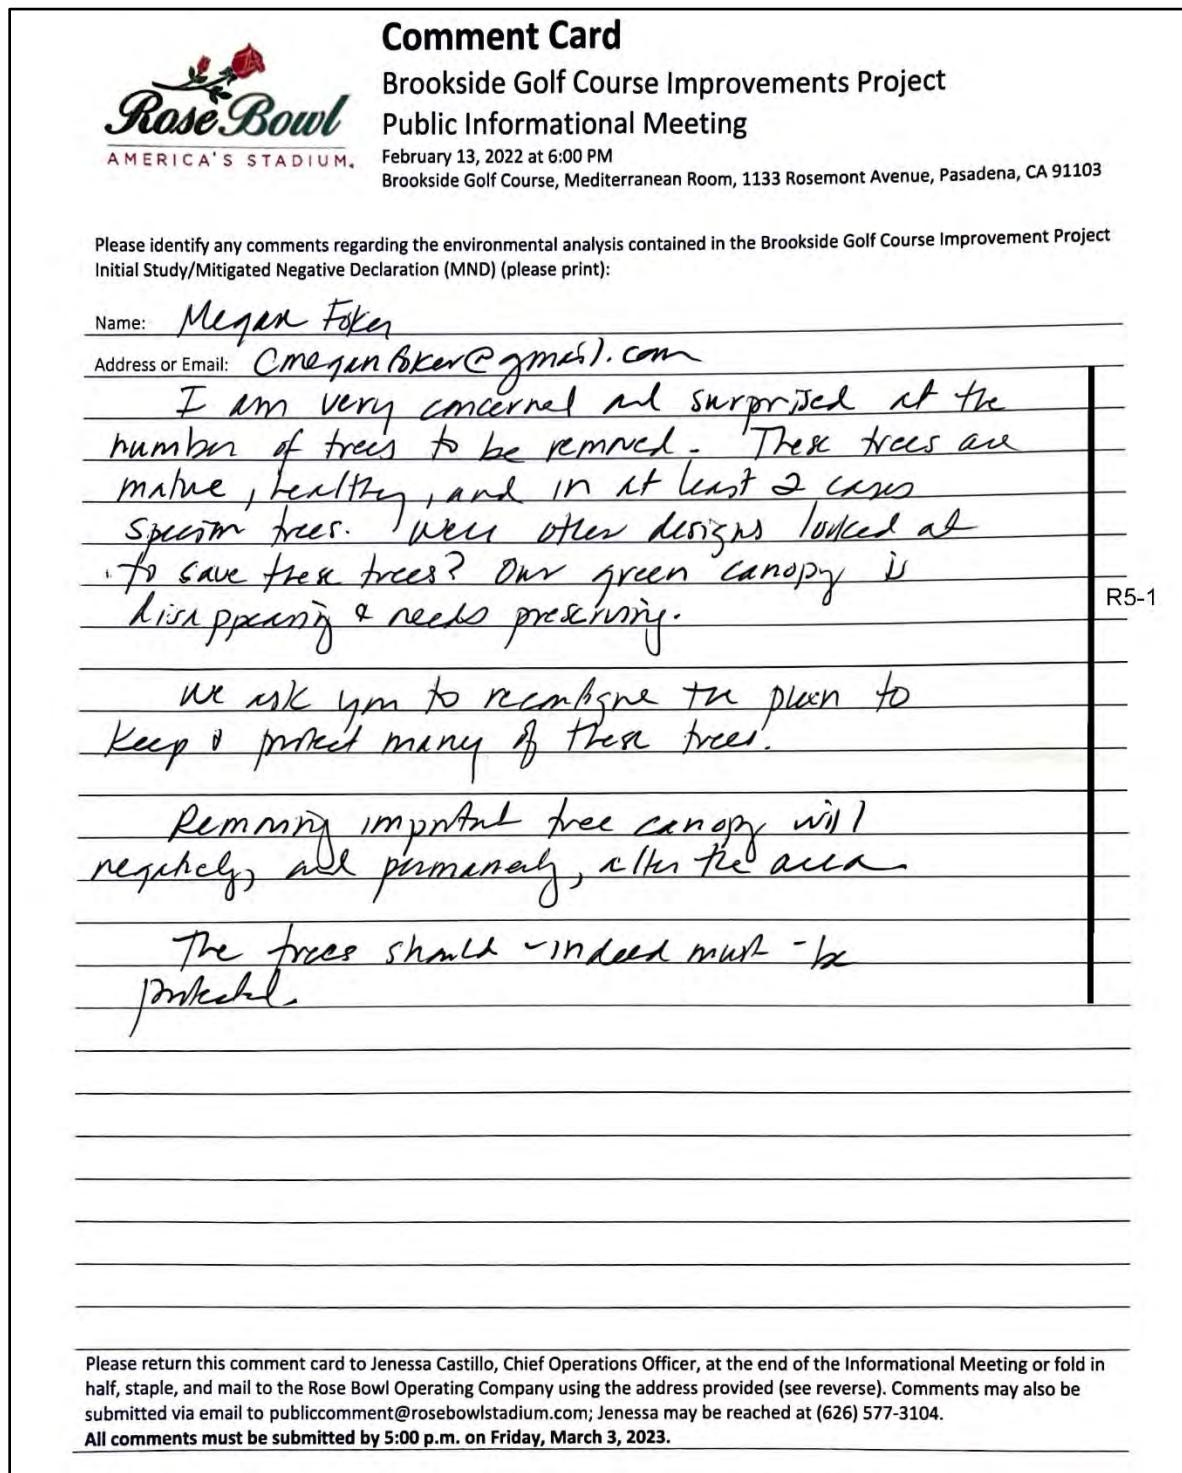 Comment Card
Brookside Golf Course Improvements Project
Public Informational Meeting
February 13, 2022 at 6:00 PM
Brookside Golf Course, Mediterranean Room, 1133 Rosemont Avenue, Pasadena, CA 91103
Rose Bowl
AMERICA'S STADIUM.
Please identify any comments regarding the environmental analysis contained in the Brookside Golf Course Improvement Project
Initial Study/Mitigated Negative Declaration (MND) (please print):
Name: Megan Foker
Address or Email: cmeganfoker@gmail.com
I am very concerned and surprised at the
number of trees to be removed. These trees are
mature, healthy, and in at least 2 cases
specimen trees. Were other designs looked at
to save these trees? Our green canopy is
disappearing & needs preserving.
R5-1
We ask you to reconfigure the plan to
keep & protect many of these trees.
Removing important tree canopy will
negatively, and permanently, alter the area.
The trees should - indeed must - be
protected.
Please return this comment card to Jenessa Castillo, Chief Operations Officer, at the end of the Informational Meeting or fold in
half, staple, and mail to the Rose Bowl Operating Company using the address provided (see reverse). Comments may also be
submitted via email to publiccomment@rosebowlstadium.com; Jenessa may be reached at (626) 577-3104.
All comments must be submitted by 5:00 p.m. on Friday, March 3, 2023.